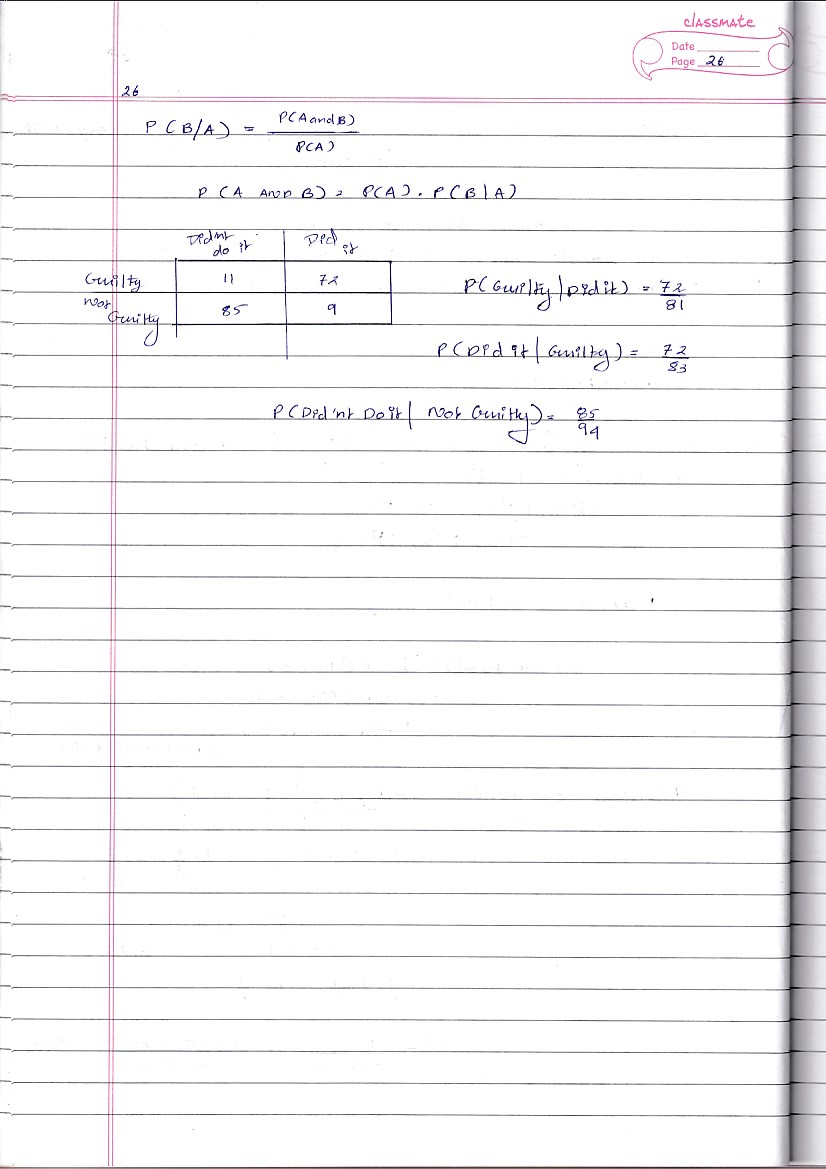 classmate
Date
Page 26
26
P(B/A) = P(A and B) / P(A)
P(A AND B) = P(A) . P(B|A)
Didnt do it Did it
Guilty 11 72
Not Guilty 85 9
P(Guilty | Did it) = 72/81
P(Did it | Guilty) = 72/83
P(Did'nt Do it | Not Guilty) = 85/94